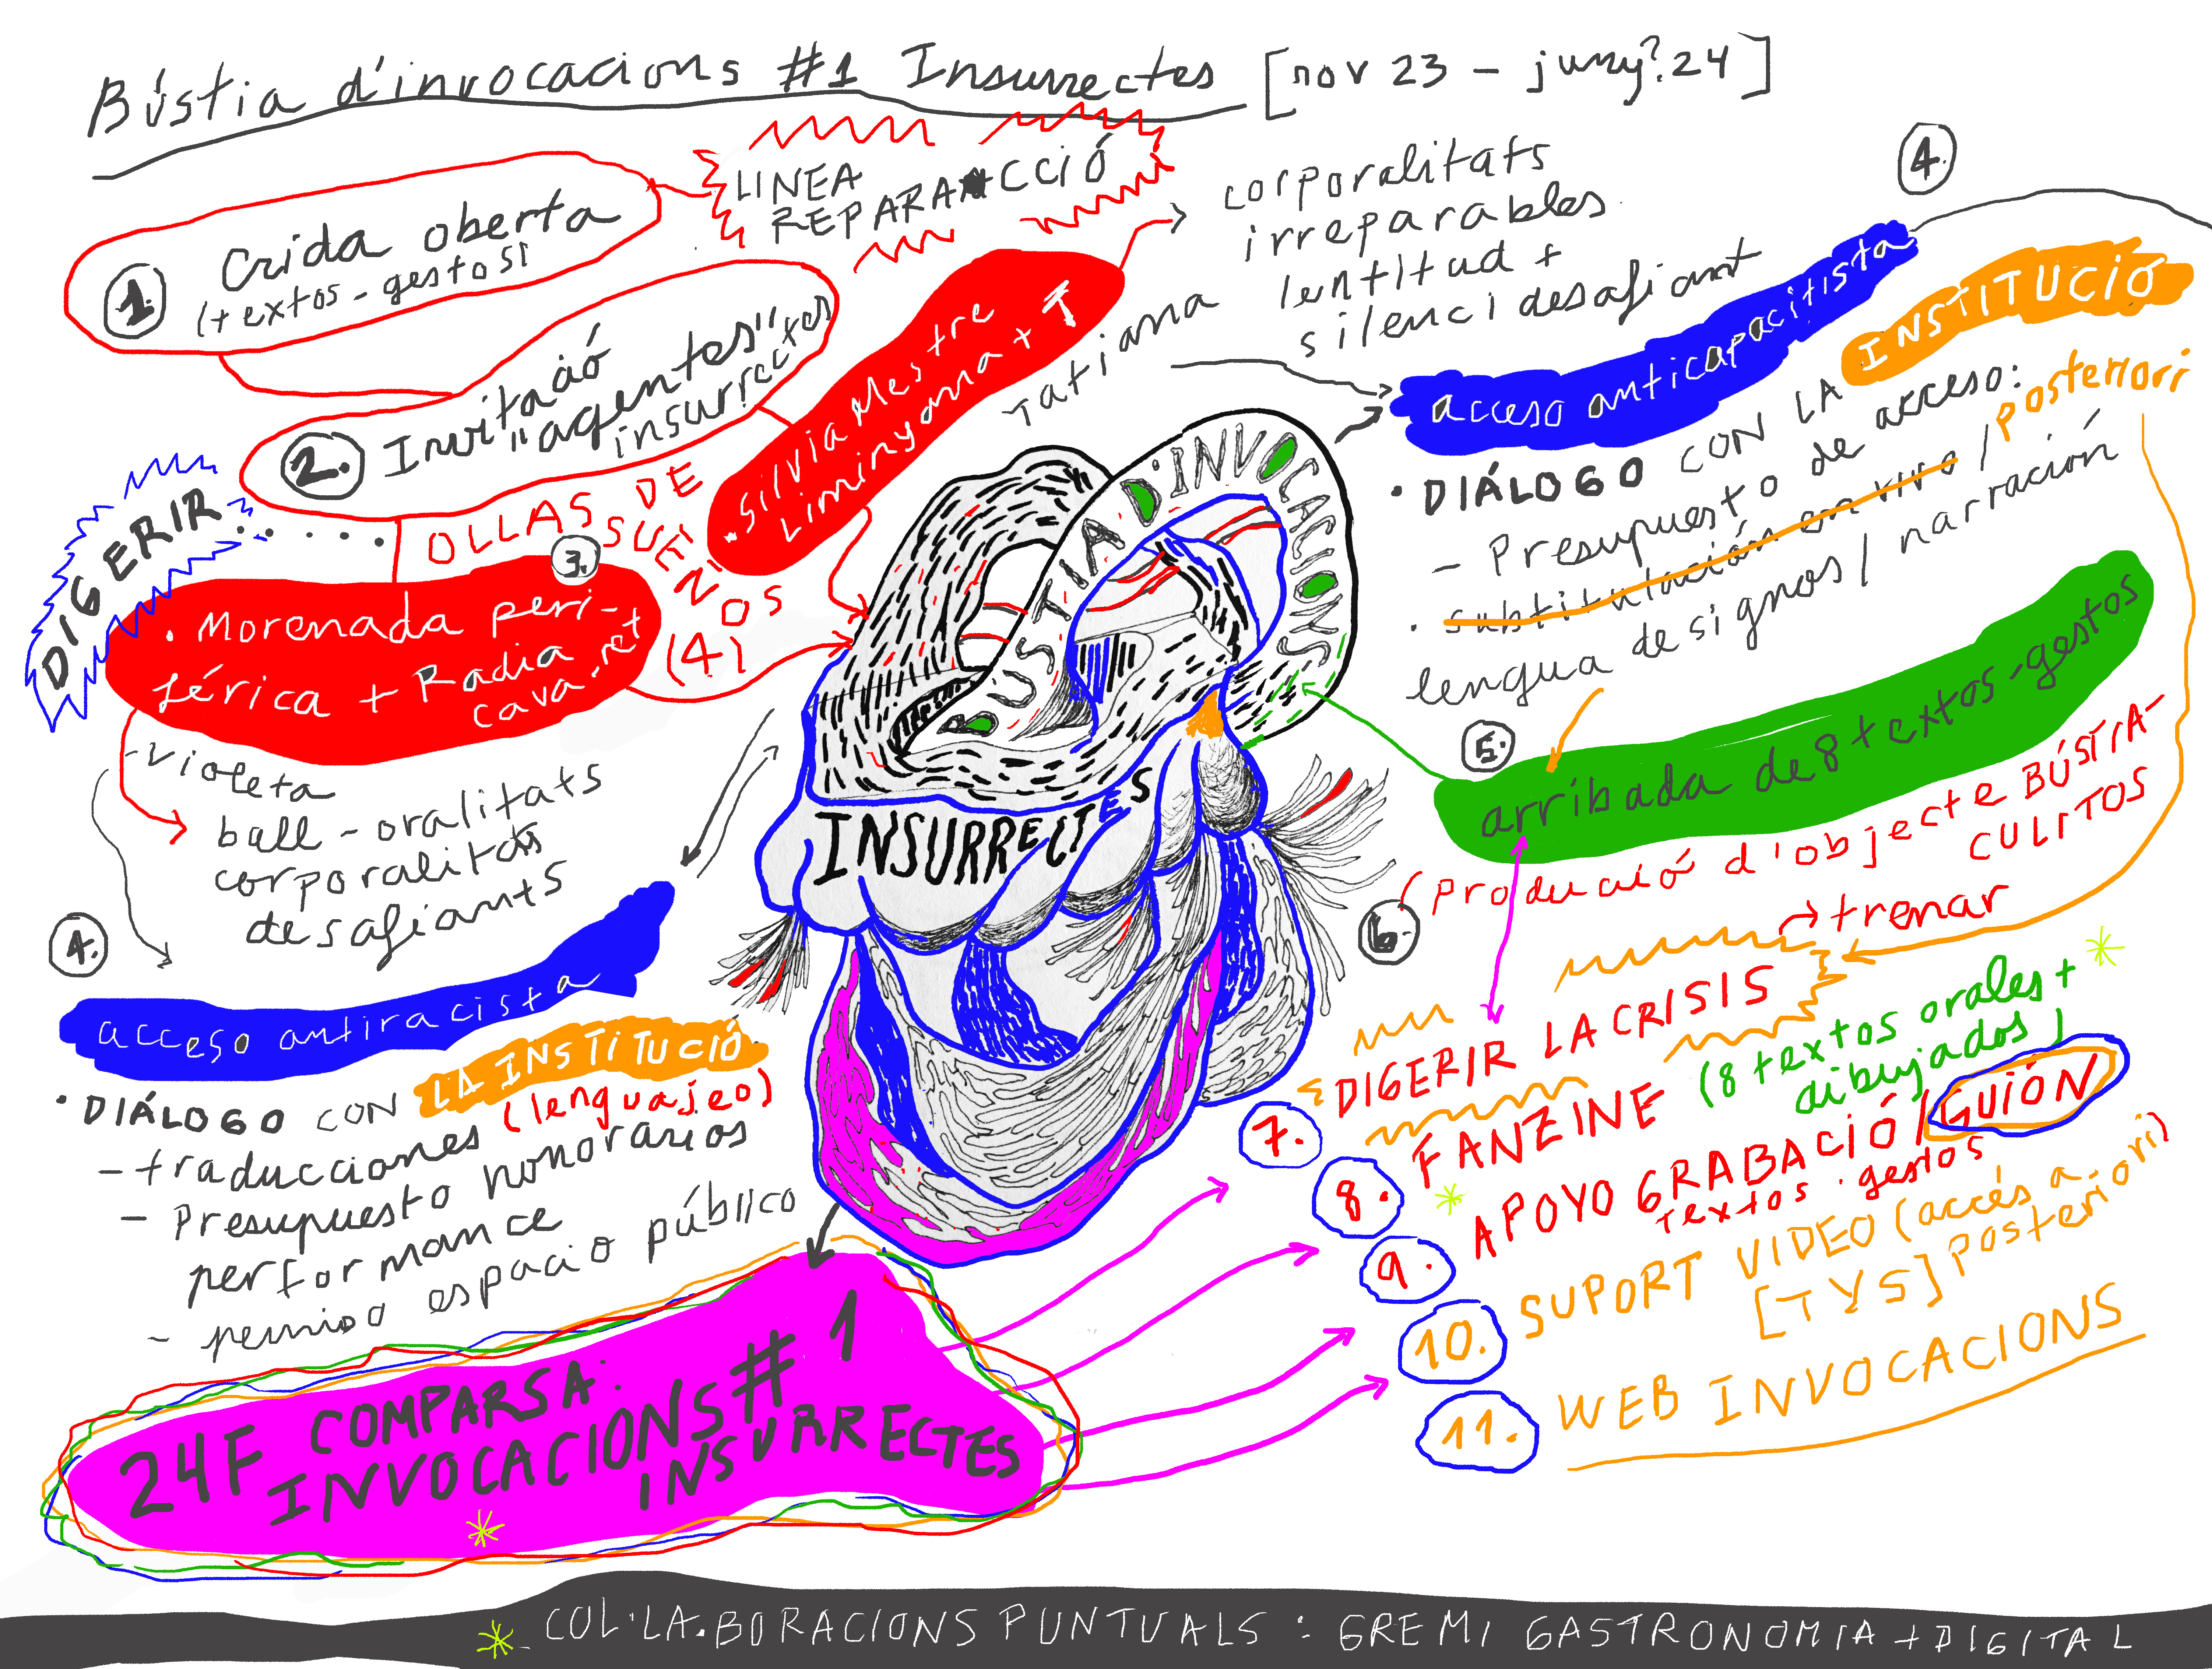 Bústia d'invocacions #1 Insurrectes [nov 23 – juny?.24]
LINEA
REPARA CCIÓ
1.
Crida oberta
(textos - gestos)
2.
Invitació
"agentes"
insurrectes
DIGERIR.......
OLLAS DE
SUEÑOS
(4)
3.
. Morenada peri-
férica + Radia
cava.ret
- Violeta
ball - oralitats
corporalitats
desafiants
. Silvia Mestre
Liminyana + T
Tatiana
corporalitats
irreparables
lentitud +
silenci desafiant
4.
acceso anticapacitista
· DIÁLOGO CON LA INSTITUCIÓ
- Presupuesto de acceso:
· subtitulación en vivo / posteriori
lengua de signos / narración
BUSTIA D'INVOCACIONS
INSURRECTES
5.
arribada de 8 textos-gestos
6.
Producció d'objecte BÚSTIA-
CULITOS
→ trenar
4.
acceso antiracista
· DIÁLOGO CON LA INSTITUCIÓ.
- traducciones (lenguajeo)
- Presupuesto honorarios
performance
- permiso espacio público
7.
DIGERIR LA CRISIS
8.
FANZINE (8 textos orales +
dibujados)
9.
APOYO GRABACIÓ / GUIÓN
textos · gestos
10.
SUPORT VIDEO (accés a-
[TVS] posteriori)
11.
WEB INVOCACIONS
24F COMPARSA:
INVOCACIONS # 1
INSURRECTES
* COL·LA.BORACIONS PUNTUALS : GREMI GASTRONOMIA + DIGITAL